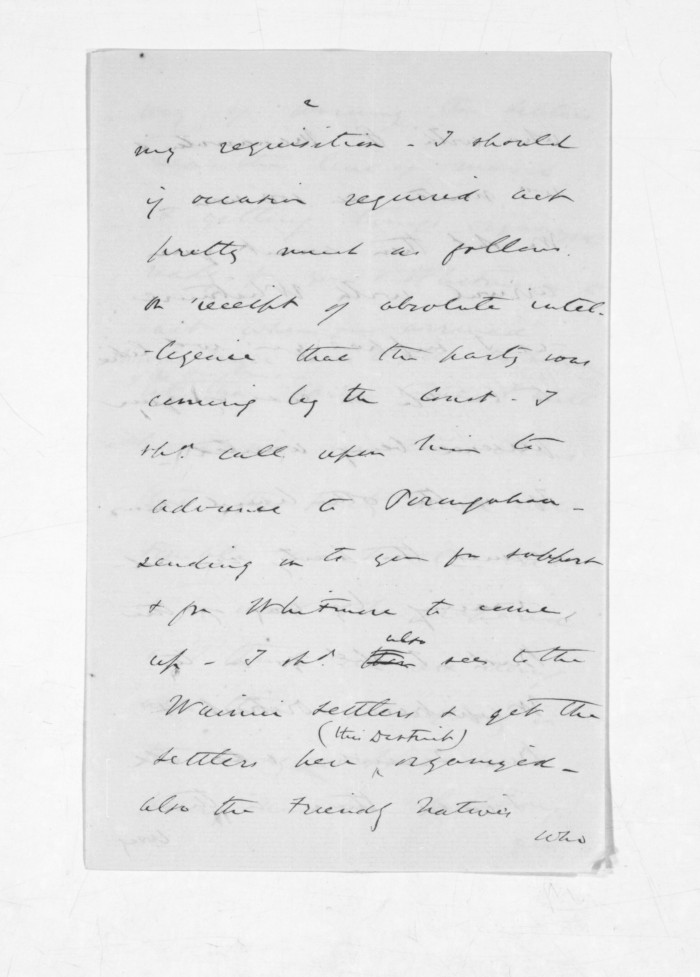 2
my requisition - I should
if occasion required act
pretty much as follows.
on receipt of absolute intel-
-ligence that the party was
coming by the Coast - I
shd. call upon him to
advance to Porangahau -
sending on to you for support
& for Whitmore to come
up - I shd. also see to the
Wainui settlers & get the
(this District)
settlers here organized -
also the Friendly Natives
who